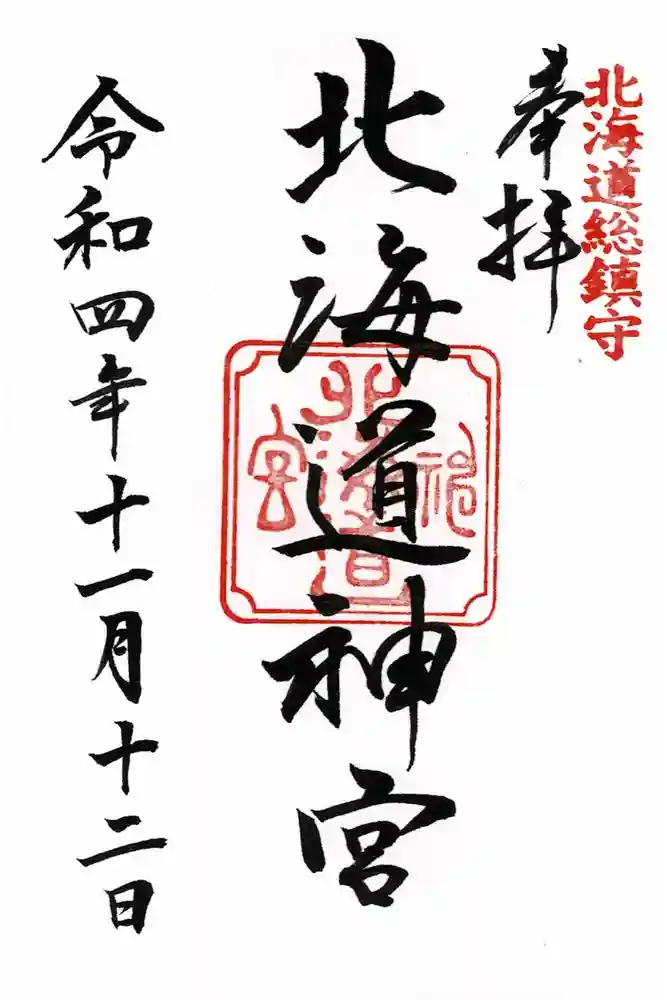 北海道総鎮守
奉拝
北海道神宮
北海道神宮
令和四年十一月十二日